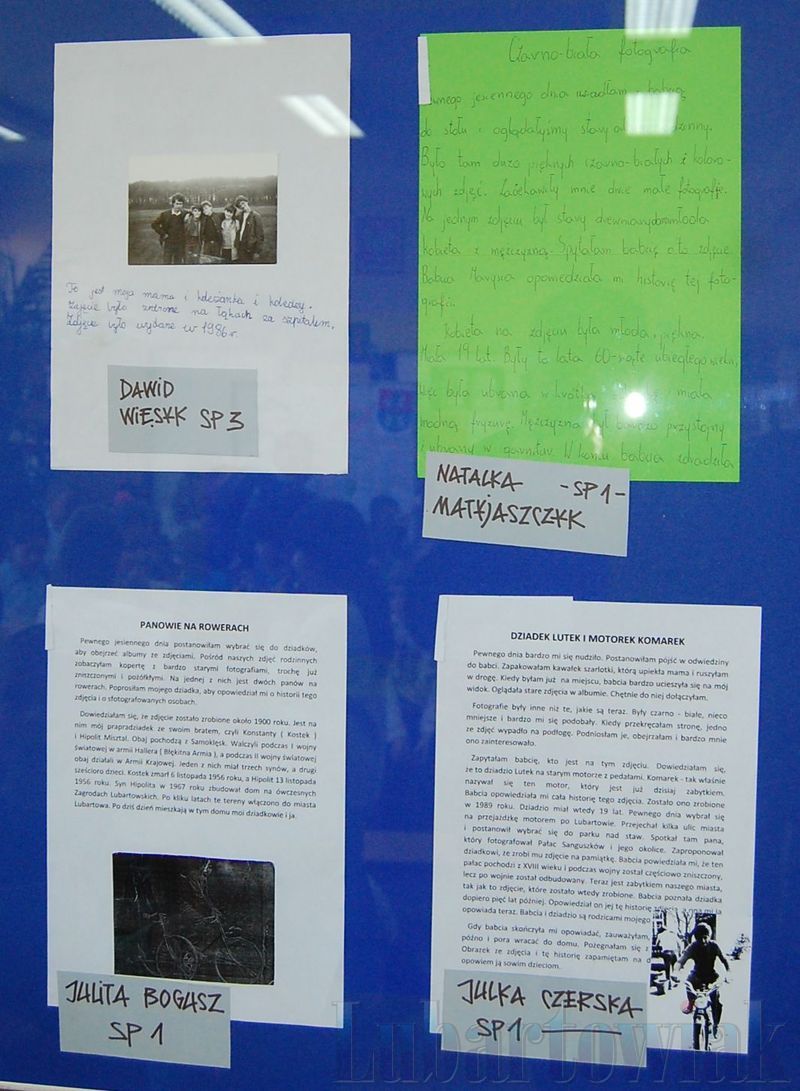 To jest moja mama i koleżanka i koledzy.
Zdjęcie było zrobione na łąkach za szpitalem.
Zdjęcie było wydane w 1986 r.
DAWID
WIĘSYK SP 3
Czarno-biała fotografia
jesiennego dnia usiadłam z babcią
do stołu i oglądałyśmy stary
Było tam dużo pięknych czarno-białych i koloro-
wych zdjęć. Zaciekawiły mnie dwie małe fotografje.
Na jednym zdjęciu był stary drewniany dom młoda
kobieta z mężczyzną. Spytałam babcię o to zdjęcie.
Babcia Marysia opowiedziała mi historię tej foto-
grafii.
Kobieta na zdjęciu była młoda, piękna.
Miała 19 lat. Były to lata 60-siąte ubiegłego wieku,
więc była ubrana w krótką miała
modną fryzurę. Mężczyzna był bardzo przystojny
i ubrany w garnitur. W końcu babcia zdradziła
NATALKA -SP 1-
MATYJASZCZYK
PANOWIE NA ROWERACH
Pewnego jesiennego dnia postanowiłam wybrać się do dziadków,
aby obejrzeć albumy ze zdjęciami. Pośród naszych zdjęć rodzinnych
zobaczyłam kopertę z bardzo starymi fotografiami, trochę już
zniszczonymi i pożółkłymi. Na jednej z nich jest dwóch panów na
rowerach. Poprosiłam mojego dziadka, aby opowiedział mi o historii tego
zdjęcia i o sfotografowanych osobach.
Dowiedziałam się, że zdjęcie zostało zrobione około 1900 roku. Jest na
nim mój prapradziadek ze swoim bratem, czyli Konstanty ( Kostek )
i Hipolit Misztal. Obaj pochodzą z Samoklęsk. Walczyli podczas I wojny
światowej w armii Hallera ( Błękitna Armia ), a podczas II wojny światowej
obaj działali w Armii Krajowej. Jeden z nich miał trzech synów, a drugi
sześcioro dzieci. Kostek zmarł 6 listopada 1956 roku, a Hipolit 13 listopada
1956 roku. Syn Hipolita w 1967 roku zbudował dom na ówczesnych
Zagrodach Lubartowskich. Po kliku latach te tereny włączono do miasta
Lubartowa. Po dziś dzień mieszkają w tym domu moi dziadkowie i ja.
JULITA BOGUSZ
SP 1
DZIADEK LUTEK I MOTOREK KOMAREK
Pewnego dnia bardzo mi się nudziło. Postanowiłam pójść w odwiedziny
do babci. Zapakowałam kawałek szarlotki, którą upiekła mama i ruszyłam
w drogę. Kiedy byłam już na miejscu, babcia bardzo ucieszyła się na mój
widok. Oglądała stare zdjęcia w albumie. Chętnie do niej dołączyłam.
Fotografie były inne niż te, jakie są teraz. Były czarno - białe, nieco
mniejsze i bardzo mi się podobały. Kiedy przekręcałam stronę, jedno
ze zdjęć wypadło na podłogę. Podniosłam je, obejrzałam i bardzo mnie
ono zainteresowało.
Zapytałam babcię, kto jest na tym zdjęciu. Dowiedziałam się,
że to dziadzio Lutek na starym motorze z pedałami. Komarek - tak właśnie
nazywał się ten motor, który jest już dzisiaj zabytkiem.
Babcia opowiedziała mi cała historię tego zdjęcia. Zostało ono zrobione
w 1989 roku. Dziadzio miał wtedy 19 lat. Pewnego dnia wybrał się
na przejażdżkę motorem po Lubartowie. Przejechał kilka ulic miasta
i postanowił wybrać się do parku nad staw. Spotkał tam pana,
który fotografował Pałac Sanguszków i jego okolice. Zaproponował
dziadkowi, że zrobi mu zdjęcie na pamiątkę. Babcia powiedziała mi, że ten
pałac pochodzi z XVIII wieku i podczas wojny został częściowo zniszczony,
lecz po wojnie został odbudowany. Teraz jest zabytkiem naszego miasta,
tak jak to zdjęcie, które zostało wtedy zrobione. Babcia poznała dziadka
dopiero pięć lat później. Opowiedział on jej tę historię zdjęcia, a ona mi ją
opowiada teraz. Babcia i dziadzio są rodzicami mojego
Gdy babcia skończyła mi opowiadać, zauważyłam,
późno i pora wracać do domu. Pożegnałam się z
Obrazek ze zdjęcia i tę historię zapamiętam na d
opowiem ją swoim dzieciom.
JULKA CZERSKA
SP 1
Lubartowiak